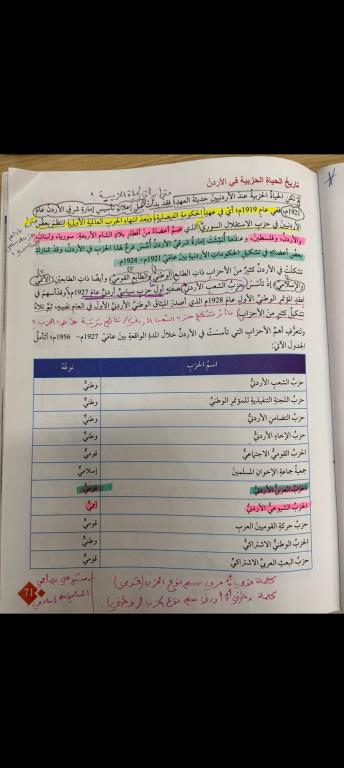 تاريخُ الحياةِ الحزبيةِ في الأردن
لم تكنِ الحياةُ الحزبيةُ عندَ الأردنيينَ حديثةَ العهدِ؛ فقد بدأتْ قبلَ إعلانِ تأسيسِ إمارةِ شرقيِّ الأردنِ عامَ
1921م، ففي عام 1919م؛ أيْ في عهدِ الحكومةِ الفيصليةِ، وبعدَ انتهاءِ الحربِ العالميةِ الأولى انتظمَ بعضُ
الأردنيينَ في حزبِ الاستقلالِ السوريِّ الذي ضمَّ أعضاءً من أقطارِ بلادِ الشامِ الأربعةِ: سوريا، ولبنان،
والأردن، وفلسطين، وعندَما أُنشِئتْ إمارةُ شرقيِّ الأردنِّ أُسِّسَ فرعٌ لهذا الحزبِ في الأردن، وقد شاركَ
بعضُ أعضائِهِ في تشكيلِ الحكوماتِ الأردنيةِ بينَ عامَيْ 1921م – 1924م.
تشكلتْ في الأردنِ كثيرٌ من الأحزابِ ذاتِ الطابعِ الوطنيِّ والطابعِ القوميِّ وأيضًا ذات الطابعينِ: الأمميِّ
والإسلاميِّ، إذْ تأسسَ حزبُ الشعبِ الأردنيِّ بصفتِهِ أولَ حزبٍ سياسيٍّ أردنيٍّ عامَ 1927م، وقد أسهمَ في
عقدِ المؤتمرِ الوطنيِّ الأولِ عامَ 1928م الذي أصدرَ الميثاقَ الوطنيَّ الأردنيَّ الأولَ في العامِ نفسِهِ، ثمَّ تلاهُ
تشكيلُ كثيرٍ منَ الأحزابِ.
ونتعرَّفُ أهمَّ الأحزابِ التي تأسستْ في الأردنِ خلالَ المدةِ الواقعةِ بينَ عامَيْ 1927م – 1956م، أتأمَّلُ
الجدولَ الآتيَ:
اسمُ الحزبِ نوعُهُ
حزبُ الشعبِ الأردنيُّ وطنيٌّ
حزبُ اللجنةِ التنفيذيةِ للمؤتمرِ الوطنيِّ وطنيٌّ
حزبُ التضامنِ الأردنيُّ وطنيٌّ
حزبُ الإخاءِ الأردنيُّ وطنيٌّ
الحزبُ القوميُّ الاجتماعيُّ قوميٌّ
جمعيةُ جماعةِ الإخوانِ المسلمينَ إسلاميٌّ
الحزبُ العربيُّ الأردنيُّ قوميٌّ
الحزبُ الشيوعيُّ الأردنيُّ أمميٌّ
حزبُ حركةِ القوميينَ العربِ قوميٌّ
الحزبُ الوطنيُّ الاشتراكيُّ وطنيٌّ
حزبُ البعثِ العربيِّ الاشتراكيِّ قوميٌّ
كلمة قومي أو عربي نوع الحزب (قومي)
كلمة وطني أو أردني نوع الحزب (وطني)
71